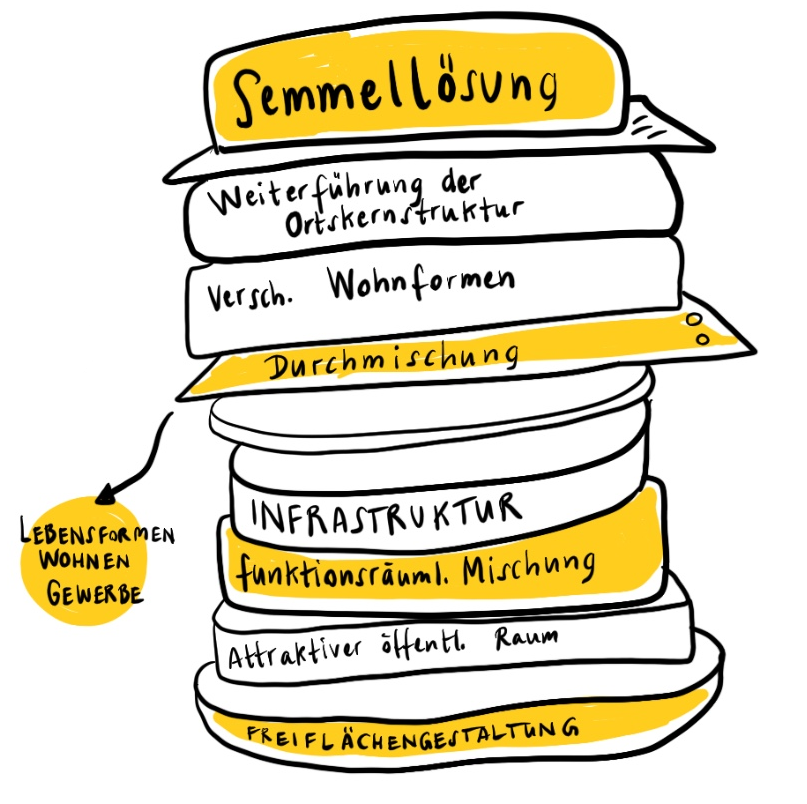 Semmellösung
Weiterführung der
Ortskernstruktur
Versch. Wohnformen
Durchmischung
INFRASTRUKTUR
LEBENSFORMEN
WOHNEN
GEWERBE
funktionsräuml. Mischung
Attraktiver öffentl. Raum
FREIFLÄCHENGESTALTUNG